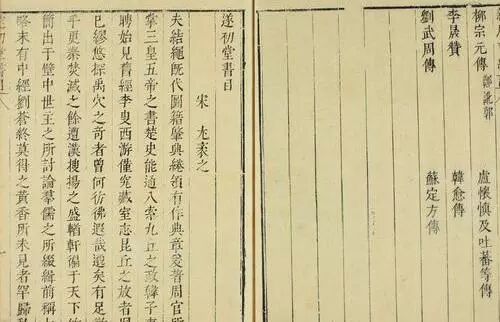 柳宗元傳 盧懷慎及吐蕃等傳
李晟贊 韓愈傳
劉武周傳 蘇定方傳
遂初堂書目
宋 尤袤之
夫結繩既代圖籍肇興綣領有作典章爰著周官所
掌三皇五帝之書楚史能道八索九丘之政韓子東
聘始見舊經李叟西游僅窺藏室志昆丘之放者
已繆悠探禹穴之奇者曾何彷彿遐哉邈矣有足
乎更秦焚滅之餘遭漢搜揚之盛輶軒徧于天下
簡出于壁中世主之所討論羣儒之所綴緝前稱
略末有中經劉蒼終莫得之黃香所未見者罕歸
初堂書目